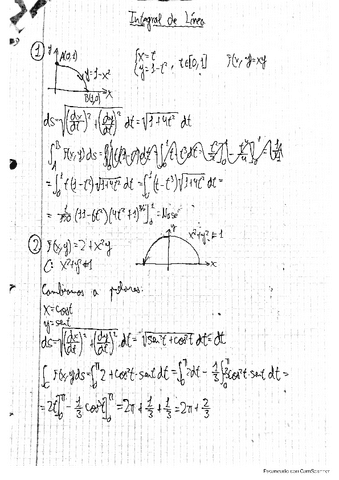 Integral de Línea
① y A(0,1) { x=t
y=1-x² { y=1-t² , t∈[0,1] f(x,y)=xy
B(1,0) x
ds=√((dx/dt)²+(dy/dt)²) dt=√(1+4t²) dt
∫_A^B f(x,y) ds=
=∫₀¹ t(1-t²)√(1+4t²) dt=∫₀¹ (t-t³)√(1+4t²) dt=
(11-6t²)(4t²+1)^(3/2)]₀¹
② f(x,y)=2+x²y y x²+y²=1
C: x²+y²=1 x
Cambiamos a polares:
x=cost
y=sent
ds=√((dx/dt)²+(dy/dt)²) dt=√(sen²t+cos²t) dt=dt
∫_C f(x,y)ds=∫₀^π 2+cos²t·sent dt=∫₀^π 2dt-1/3∫₀^π 3cos²t·sent dt=
=2t]₀^π-1/3 cos³t]₀^π=2π+1/3+1/3=2π+2/3
Escaneado con CamScanner